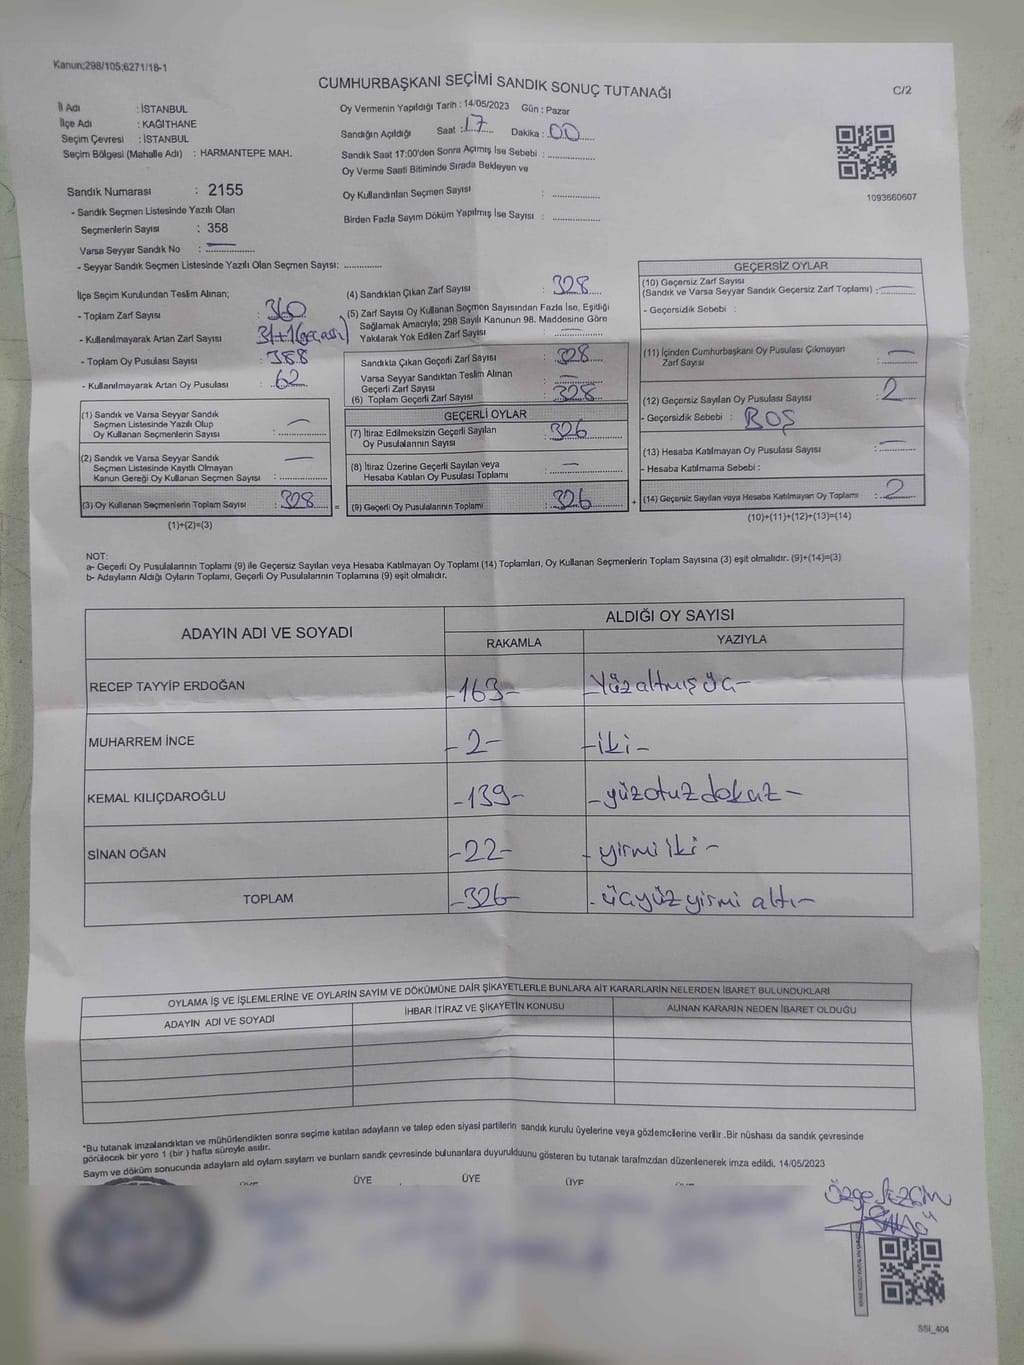 Kanun;298/105;6271/18-1
CUMHURBAŞKANI SEÇİMİ SANDIK SONUÇ TUTANAĞI
C/2
İl Adı : İSTANBUL
İlçe Adı : KAĞITHANE
Seçim Çevresi : İSTANBUL
Seçim Bölgesi (Mahalle Adı) : HARMANTEPE MAH.
Oy Vermenin Yapıldığı Tarih : 14/05/2023 Gün : Pazar
Sandığın Açıldığı Saat : 17 Dakika : 00
Sandık Saat 17:00'den Sonra Açılmış İse Sebebi :
Oy Verme Saati Bitiminde Sırada Bekleyen ve
Oy Kullandırılan Seçmen Sayısı :
Birden Fazla Sayım Döküm Yapılmış İse Sayısı :
1093660607
Sandık Numarası : 2155
- Sandık Seçmen Listesinde Yazılı Olan
Seçmenlerin Sayısı : 358
Varsa Seyyar Sandık No : —
- Seyyar Sandık Seçmen Listesinde Yazılı Olan Seçmen Sayısı:
İlçe Seçim Kurulundan Teslim Alınan;
- Toplam Zarf Sayısı : 360
- Kullanılmayarak Artan Zarf Sayısı : 31+1
- Toplam Oy Pusulası Sayısı : 388
- Kullanılmayarak Artan Oy Pusulası : 62
(1) Sandık ve Varsa Seyyar Sandık
Seçmen Listesinde Yazılı Olup
Oy Kullanan Seçmenlerin Sayısı : —
(2) Sandık ve Varsa Seyyar Sandık
Seçmen Listesinde Kayıtlı Olmayan
Kanun Gereği Oy Kullanan Seçmen Sayısı : —
(3) Oy Kullanan Seçmenlerin Toplam Sayısı : 328
(1)+(2)=(3)
(4) Sandıktan Çıkan Zarf Sayısı : 328
(5) Zarf Sayısı Oy Kullanan Seçmen Sayısından Fazla İse, Eşitliği
Sağlamak Amacıyla; 298 Sayılı Kanunun 98. Maddesine Göre
Yakılarak Yok Edilen Zarf Sayısı : —
Sandıkta Çıkan Geçerli Zarf Sayısı : 328
Varsa Seyyar Sandıktan Teslim Alınan
Geçerli Zarf Sayısı : —
(6) Toplam Geçerli Zarf Sayısı : 328
GEÇERLİ OYLAR
(7) İtiraz Edilmeksizin Geçerli Sayılan
Oy Pusulalarının Sayısı : 326
(8) İtiraz Üzerine Geçerli Sayılan veya
Hesaba Katılan Oy Pusulası Toplamı : —
= (9) Geçerli Oy Pusulalarının Toplamı : 326 +
GEÇERSİZ OYLAR
(10) Geçersiz Zarf Sayısı
(Sandık ve Varsa Seyyar Sandık Geçersiz Zarf Toplamı) : —
- Geçersizlik Sebebi :
(11) İçinden Cumhurbaşkanı Oy Pusulası Çıkmayan
Zarf Sayısı : —
(12) Geçersiz Sayılan Oy Pusulası Sayısı : 2
- Geçersizlik Sebebi : BOŞ
(13) Hesaba Katılmayan Oy Pusulası Sayısı : —
- Hesaba Katılmama Sebebi :
(14) Geçersiz Sayılan veya Hesaba Katılmayan Oy Toplamı : 2
(10)+(11)+(12)+(13)=(14)
NOT:
a- Geçerli Oy Pusulalarının Toplamı (9) ile Geçersiz Sayılan veya Hesaba Katılmayan Oy Toplamı (14) Toplamları, Oy Kullanan Seçmenlerin Toplam Sayısına (3) eşit olmalıdır. (9)+(14)=(3)
b- Adayların Aldığı Oyların Toplamı, Geçerli Oy Pusulalarının Toplamına (9) eşit olmalıdır.
ADAYIN ADI VE SOYADI
ALDIĞI OY SAYISI
RAKAMLA YAZIYLA
RECEP TAYYİP ERDOĞAN -163- -Yüzaltmışüç-
MUHARREM İNCE -2- -iki-
KEMAL KILIÇDAROĞLU -139- -yüzotuzdokuz-
SİNAN OĞAN -22- -yirmiiki-
TOPLAM -326- -üçyüzyirmialtı-
OYLAMA İŞ VE İŞLEMLERİNE VE OYLARIN SAYIM VE DÖKÜMÜNE DAİR ŞİKAYETLERLE BUNLARA AİT KARARLARIN NELERDEN İBARET BULUNDUKLARI
ADAYIN ADI VE SOYADI İHBAR İTİRAZ VE ŞİKAYETİN KONUSU ALINAN KARARIN NEDEN İBARET OLDUĞU
*Bu tutanak imzalandıktan ve mühürlendikten sonra seçime katılan adayların ve talep eden siyasi partilerin sandık kurulu üyelerine veya gözlemcilerine verilir .Bir nüshası da sandık çevresinde
görülecek bir yere 1 (bir ) hafta süreyle asılır.
Sayım ve döküm sonucunda adayların ald oyların sayıların ve bunların sandk çevresinde bulunanlara duyurulduunu gösteren bu tutanak tarafmzdan düzenlenerek imza edildi. 14/05/2023
ÜYE ÜYE ÜYE
Özge SEZGİN
SSİ_404